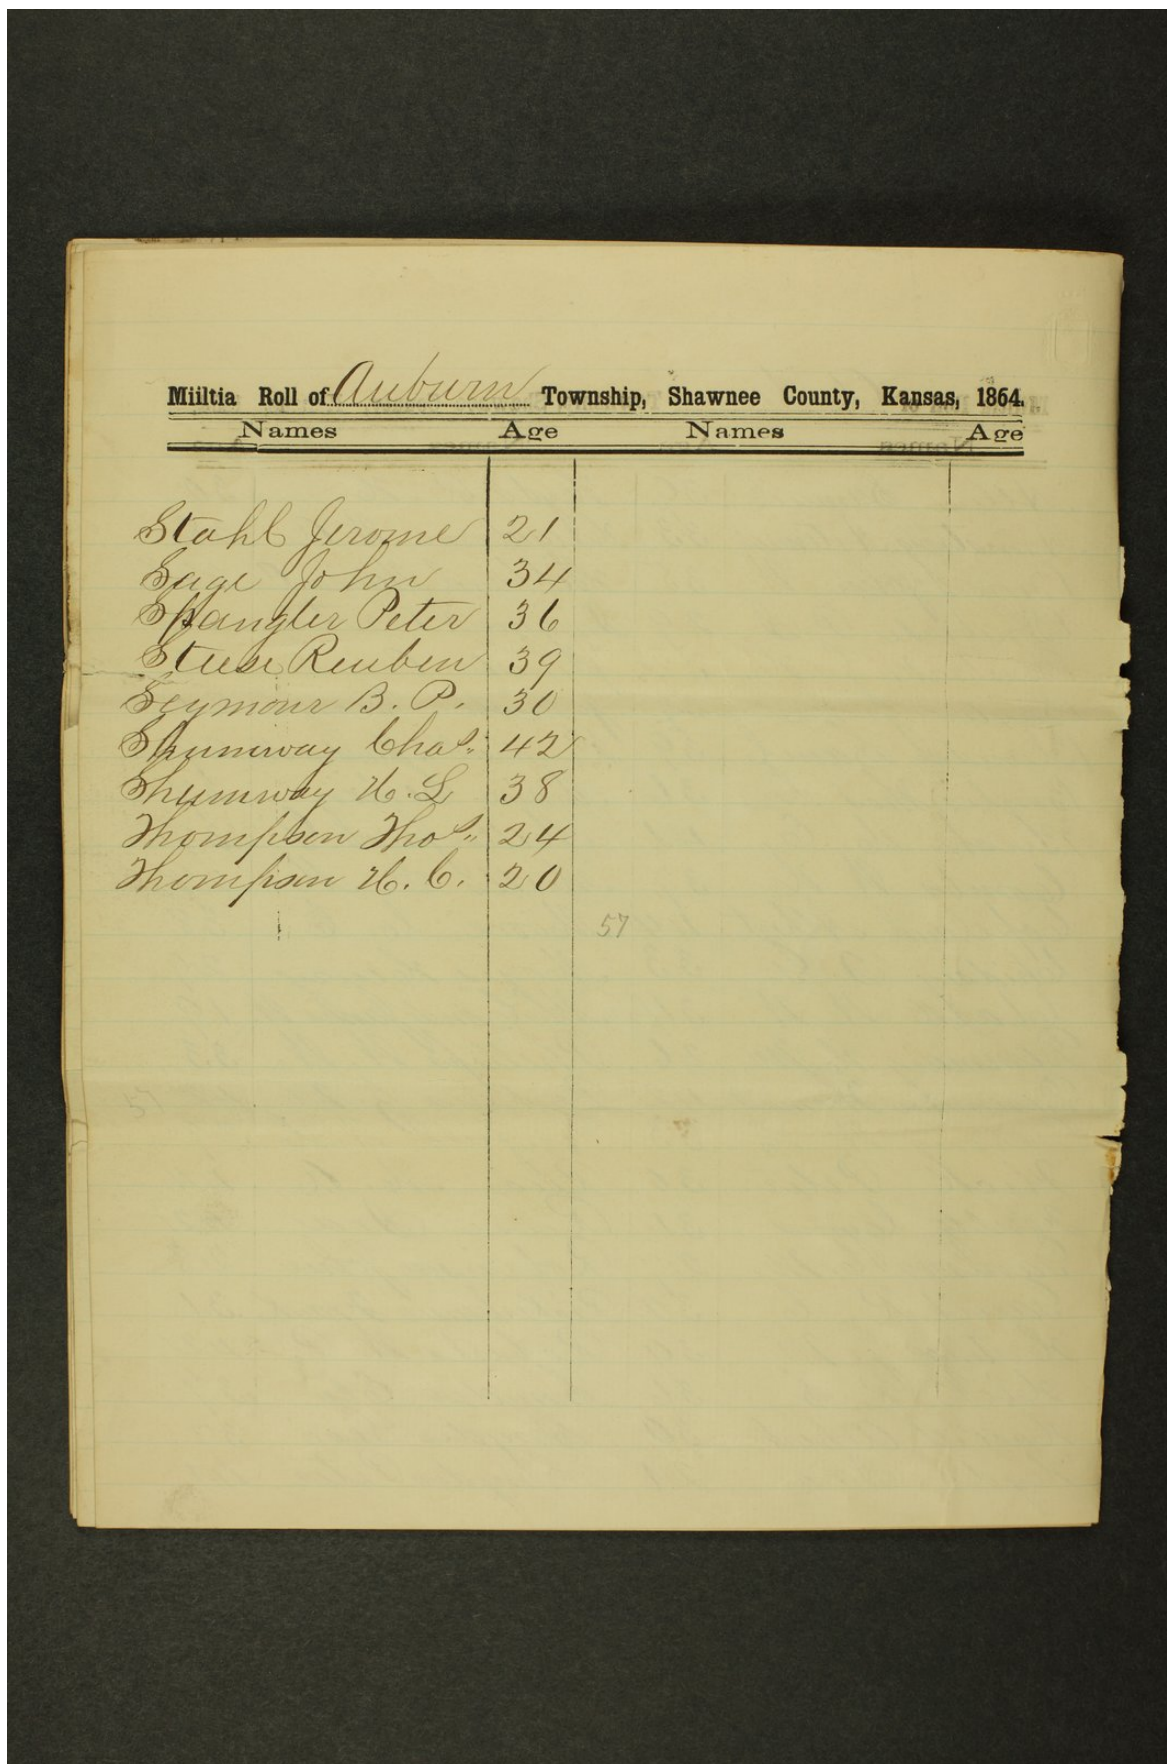 Miiltia Roll of Auburn Township, Shawnee County, Kansas, 1864.
Names Age Names Age
Stahl Jerome 21
Sage John 34
Spangler Peter 36
Steese Reuben 39
Seymour B. P. 30
Shumway Chas. 42
Shumway H. L 38
Thompson Thos. 24
Thompson H. C. 20
57